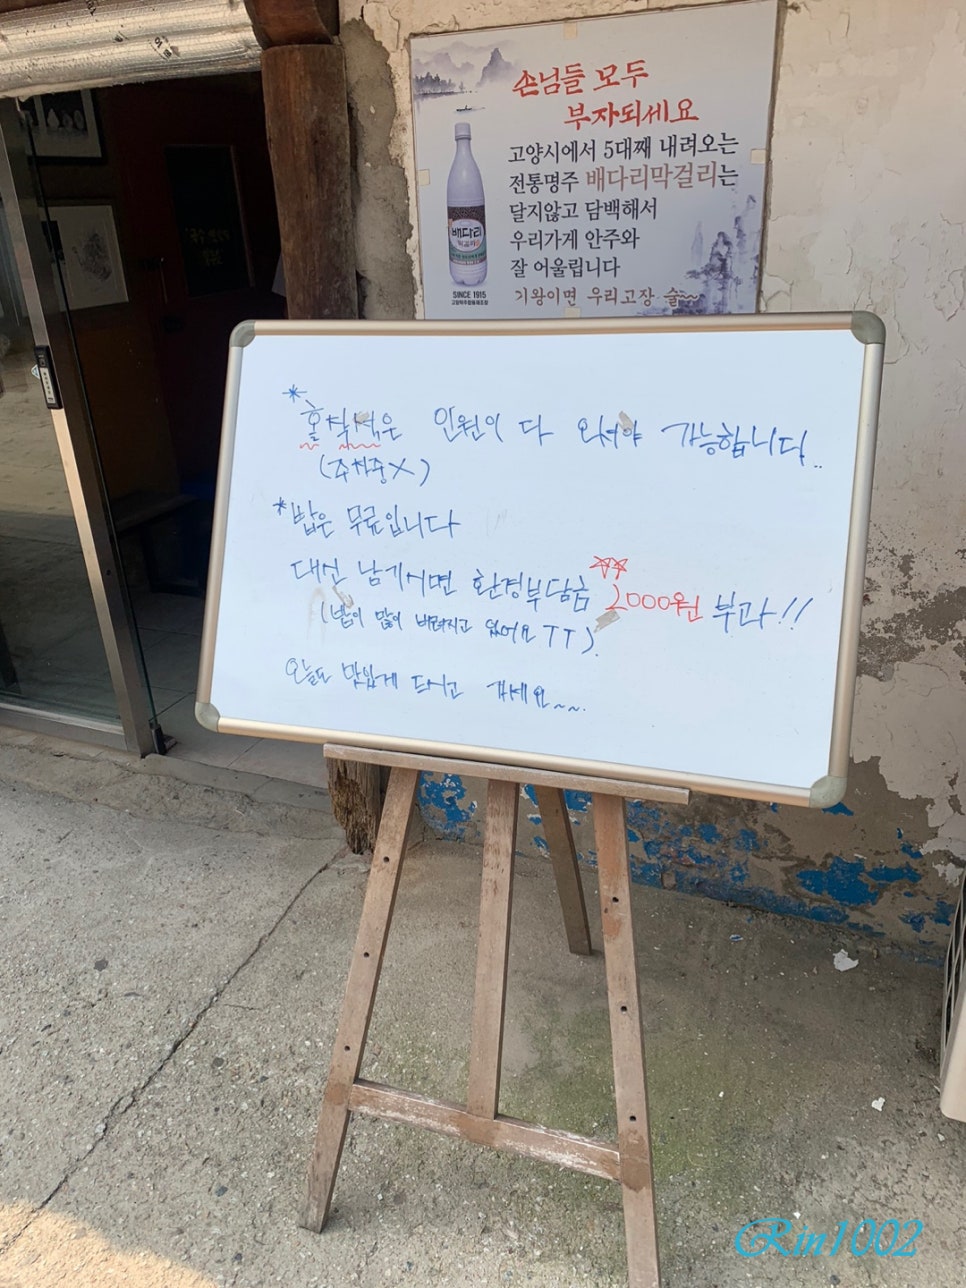 손님들 모두
부자되세요
고양시에서 5대째 내려오는
전통명주 배다리막걸리는
달지않고 담백해서
우리가게 안주와
잘 어울립니다
기왕이면 우리고장 술~~
배다리
막걸리
SINCE 1915
* 홀착석은 인원이 다 오셔야 가능합니다..
(주차중X)
* 밥은 무료입니다
대신 남기시면 환경부담금 ☆☆ 2000원 부과!!
(밥이 많이 버려지고 있어요 TT).
오늘도 맛있게 드시고 가세요~~.
Rin1002